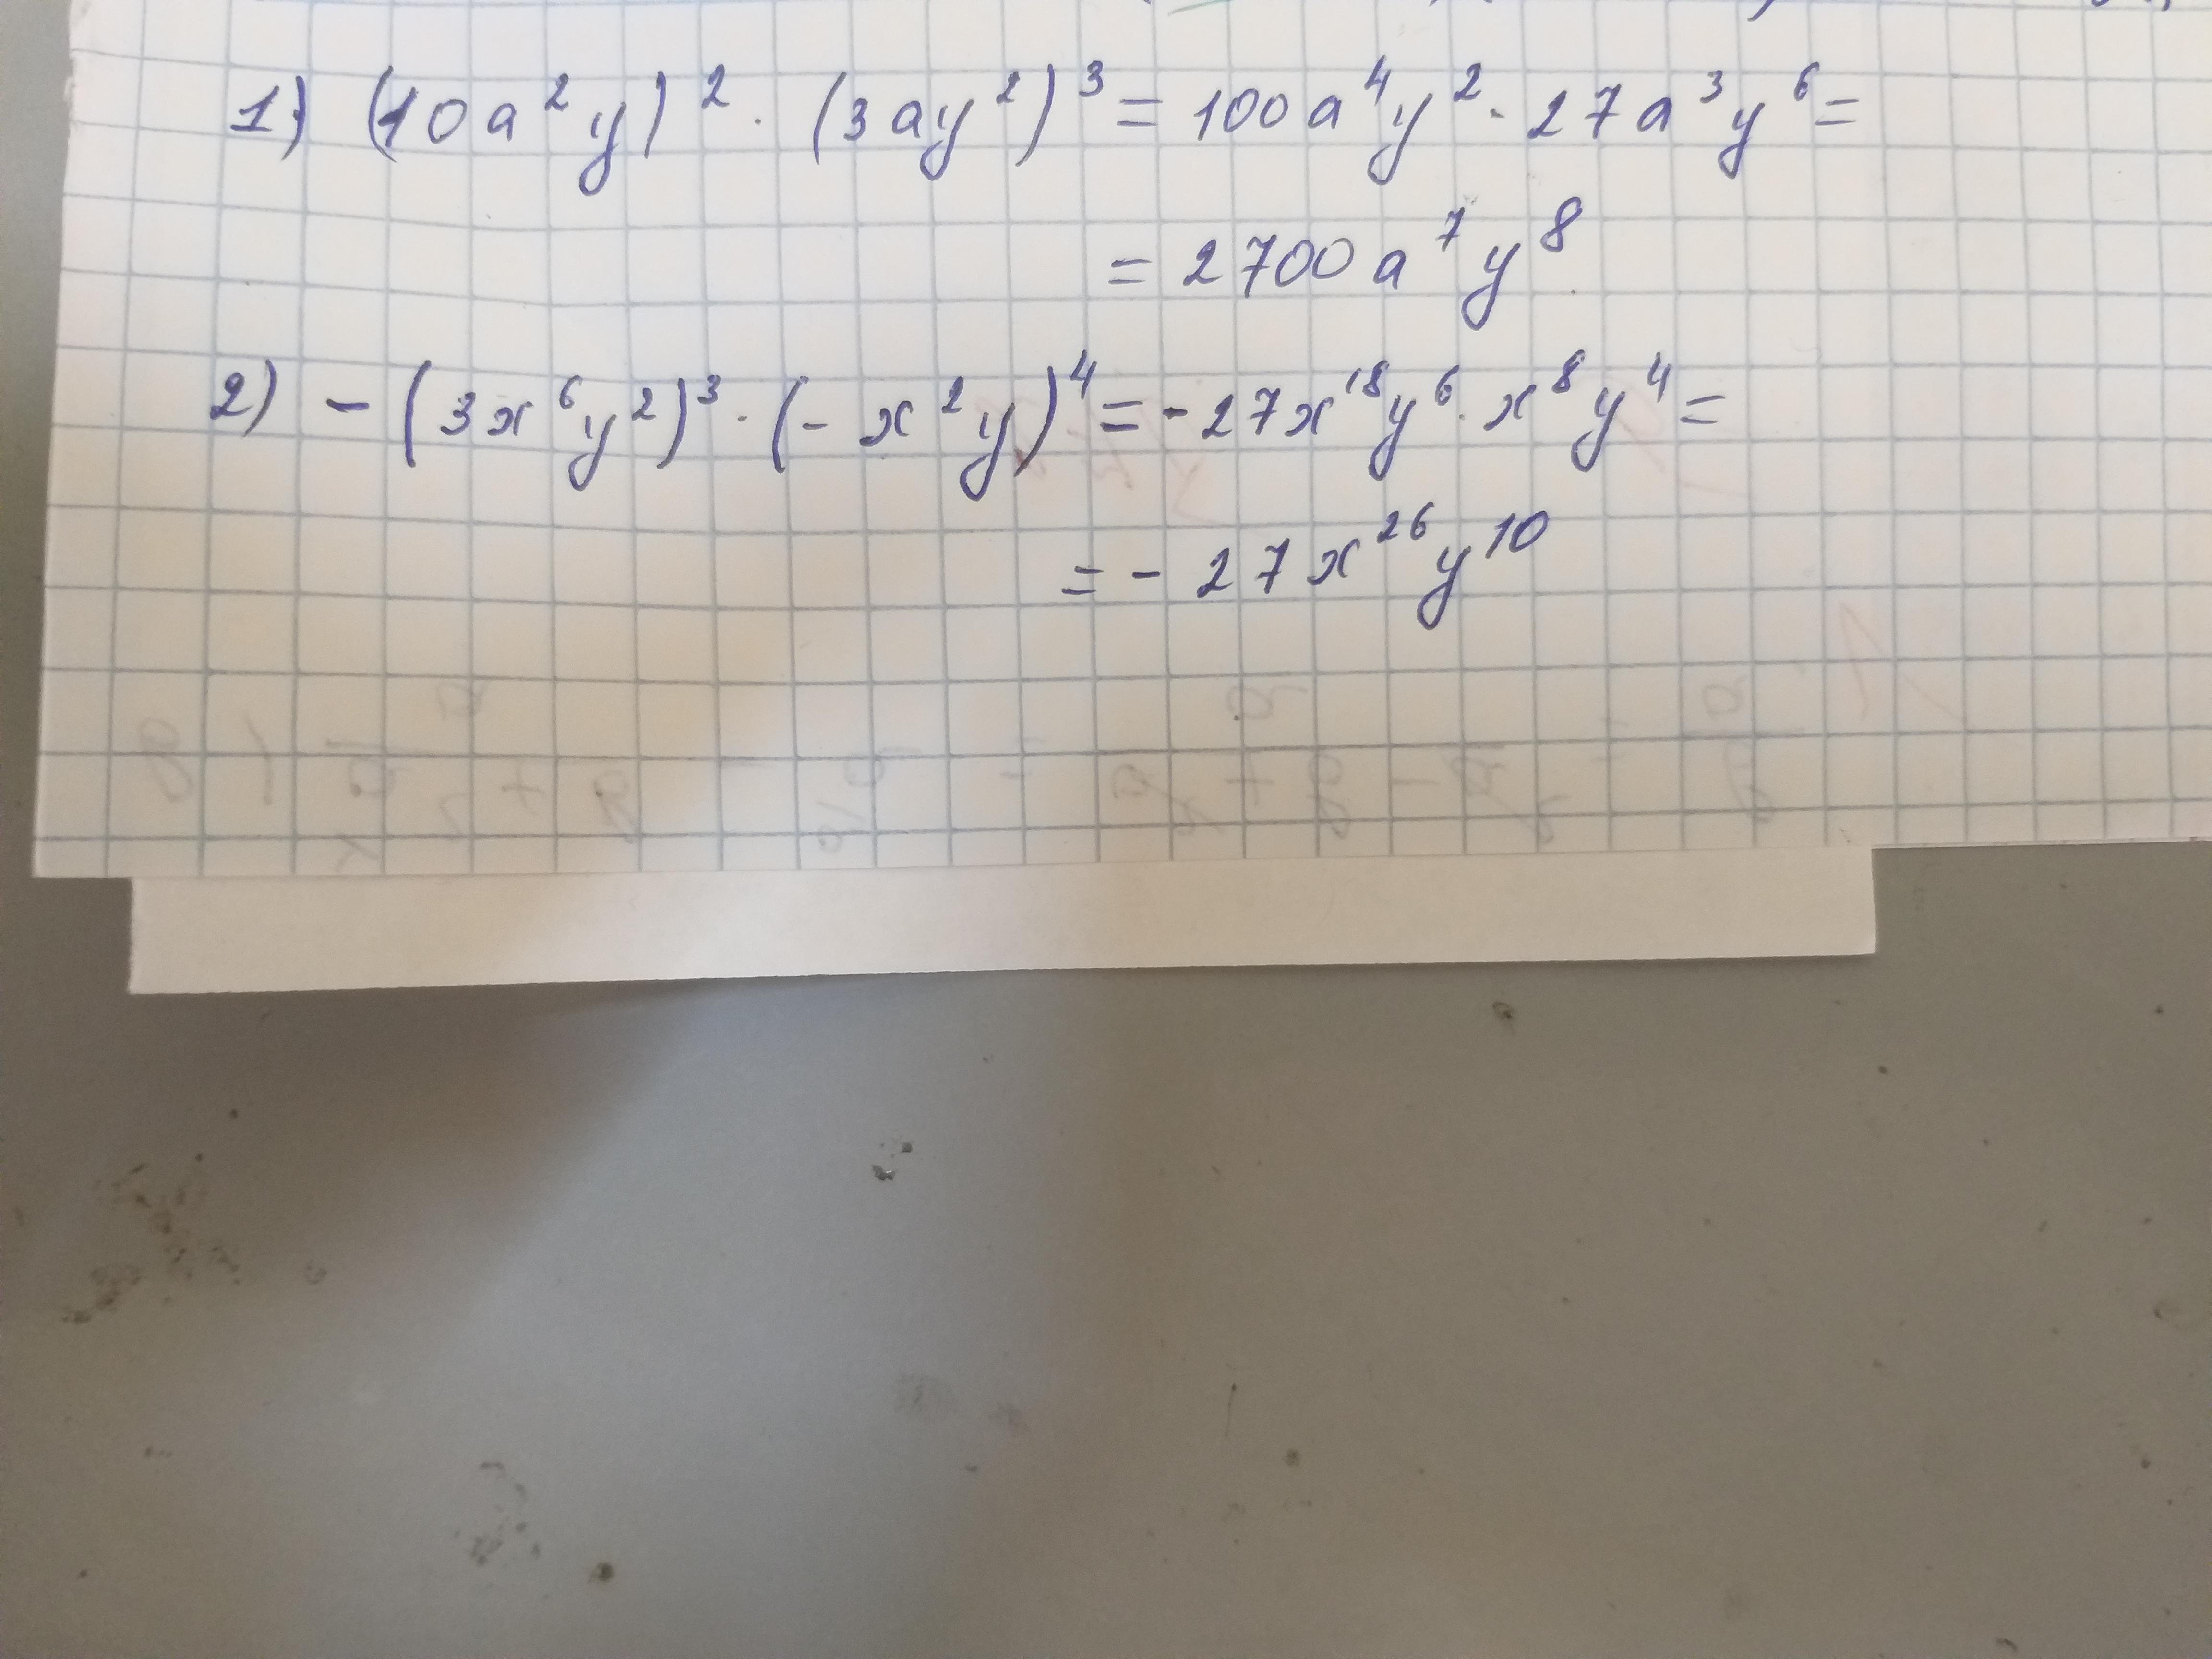 1) (10a²y)² · (3ay²)³ = 100a⁴y² · 27a³y⁶ =
= 2700a⁷y⁸
2) - (3x⁶y²)³ · (- x²y)⁴ = - 27x¹⁸y⁶ · x⁸y⁴ =
= - 27x²⁶y¹⁰